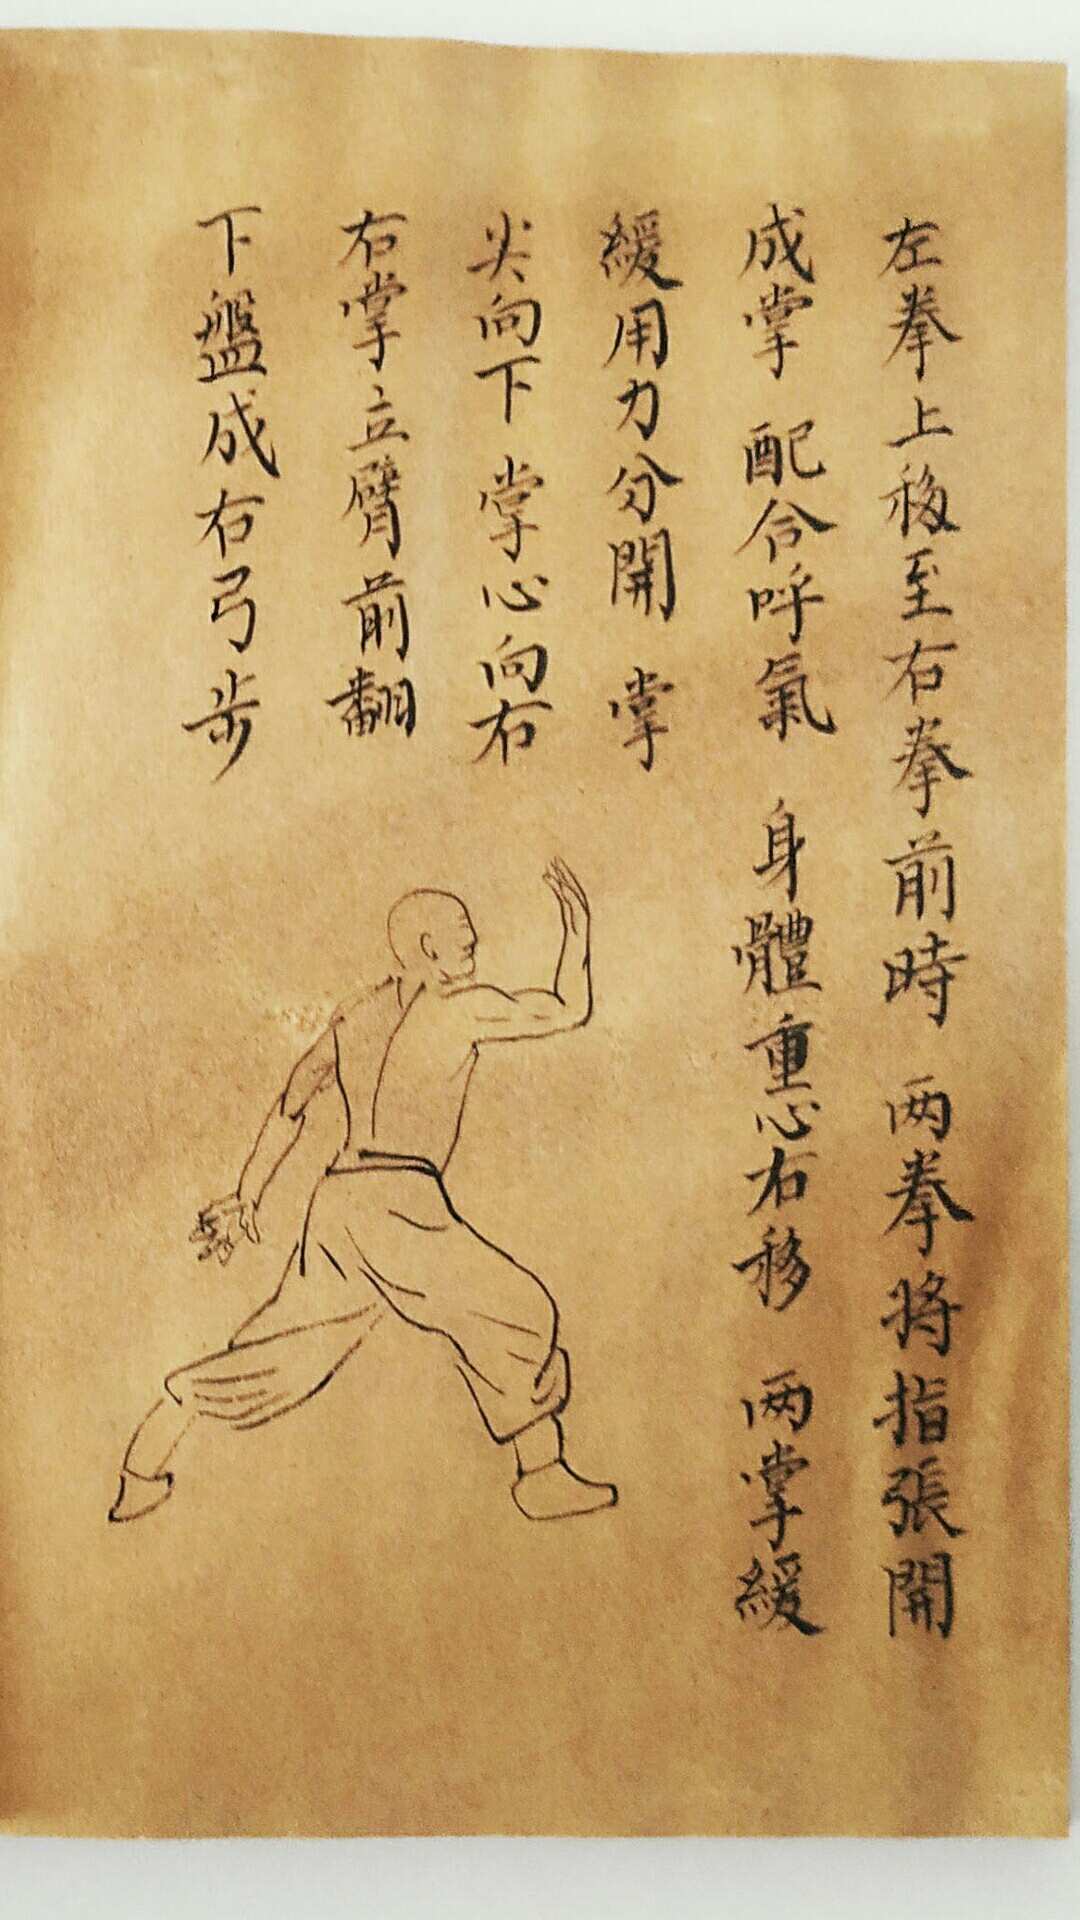 左拳上移至右拳前時 两拳将指張開
成掌 配合呼氣 身體重心右移 两掌緩
緩用力分開 掌
尖向下 掌心向右
右掌立臂前翻
下盤成右弓步